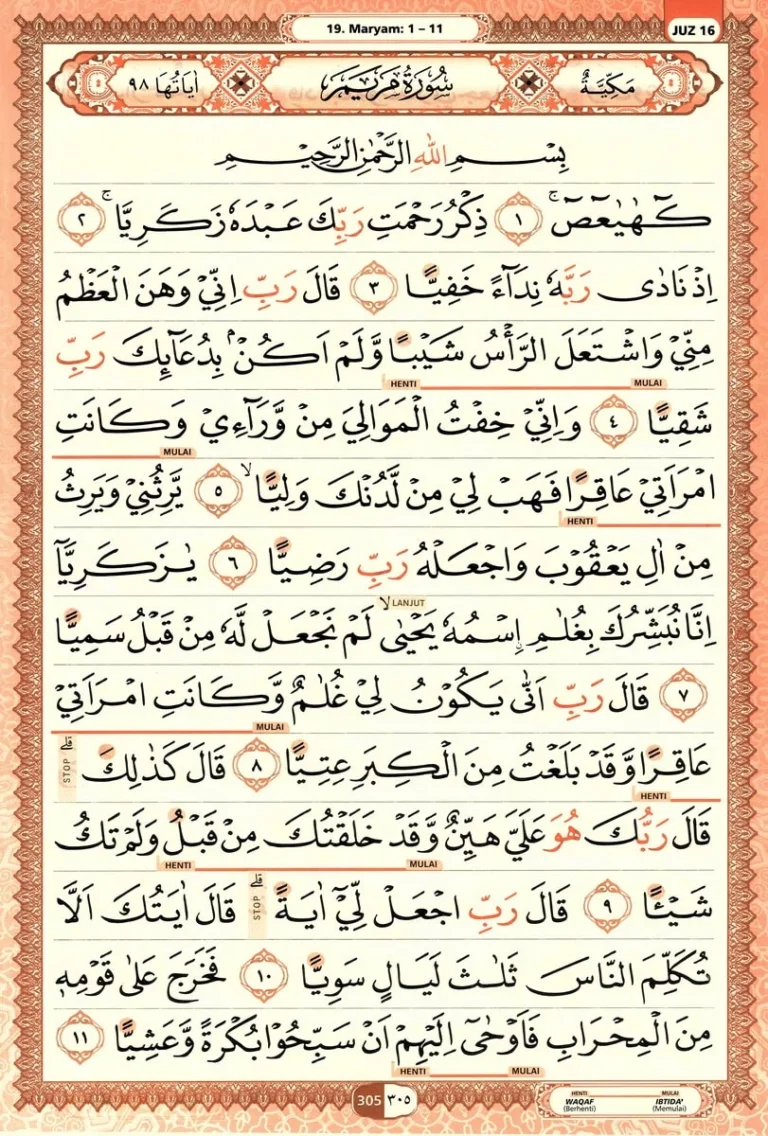 19. Maryam: 1 – 11
JUZ 16
مَكِّيَّةٌ
سُوْرَةُ مَرْيَمَ
اٰيَاتُهَا ٩٨
بِسْمِ اللّٰهِ الرَّحْمٰنِ الرَّحِيْمِ
كۤهٰيٰعۤصۤ ۚ ١ ذِكْرُ رَحْمَتِ رَبِّكَ عَبْدَهٗ زَكَرِيَّا ۚ ٢
اِذْ نَادٰى رَبَّهٗ نِدَاۤءً خَفِيًّا ٣ قَالَ رَبِّ اِنِّيْ وَهَنَ الْعَظْمُ
مِنِّيْ وَاشْتَعَلَ الرَّأْسُ شَيْبًا وَّلَمْ اَكُنْۢ بِدُعَاۤىِٕكَ رَبِّ
HENTI MULAI
شَقِيًّا ٤ وَاِنِّيْ خِفْتُ الْمَوَالِيَ مِنْ وَّرَاۤءِيْ وَكَانَتِ
MULAI
امْرَاَتِيْ عَاقِرًا فَهَبْ لِيْ مِنْ لَّدُنْكَ وَلِيًّا ۙ ٥ يَّرِثُنِيْ وَيَرِثُ
HENTI
مِنْ اٰلِ يَعْقُوْبَ وَاجْعَلْهُ رَبِّ رَضِيًّا ٦ يٰزَكَرِيَّآ
اِنَّا نُبَشِّرُكَ بِغُلٰمِ ِۨاسْمُهٗ يَحْيٰىۙ لَمْ نَجْعَلْ لَّهٗ مِنْ قَبْلُ سَمِيًّا
LANJUT
٧ قَالَ رَبِّ اَنّٰى يَكُوْنُ لِيْ غُلٰمٌ وَّكَانَتِ امْرَاَتِيْ
MULAI
عَاقِرًا وَّقَدْ بَلَغْتُ مِنَ الْكِبَرِ عِتِيًّا ٨ قَالَ كَذٰلِكَ ۗ
STOP
HENTI
قَالَ رَبُّكَ هُوَ عَلَيَّ هَيِّنٌ وَّقَدْ خَلَقْتُكَ مِنْ قَبْلُ وَلَمْ تَكُ
HENTI MULAI
شَيْـًٔا ٩ قَالَ رَبِّ اجْعَلْ لِّيْٓ اٰيَةً ۗ قَالَ اٰيَتُكَ اَلَّا
STOP
تُكَلِّمَ النَّاسَ ثَلٰثَ لَيَالٍ سَوِيًّا ١٠ فَخَرَجَ عَلٰى قَوْمِهٖ
مِنَ الْمِحْرَابِ فَاَوْحٰٓى اِلَيْهِمْ اَنْ سَبِّحُوْا بُكْرَةً وَّعَشِيًّا ١١
HENTI MULAI
305 ٣٠٥
HENTI MULAI
WAQAF IBTIDA'
(Berhenti) (Memulai)